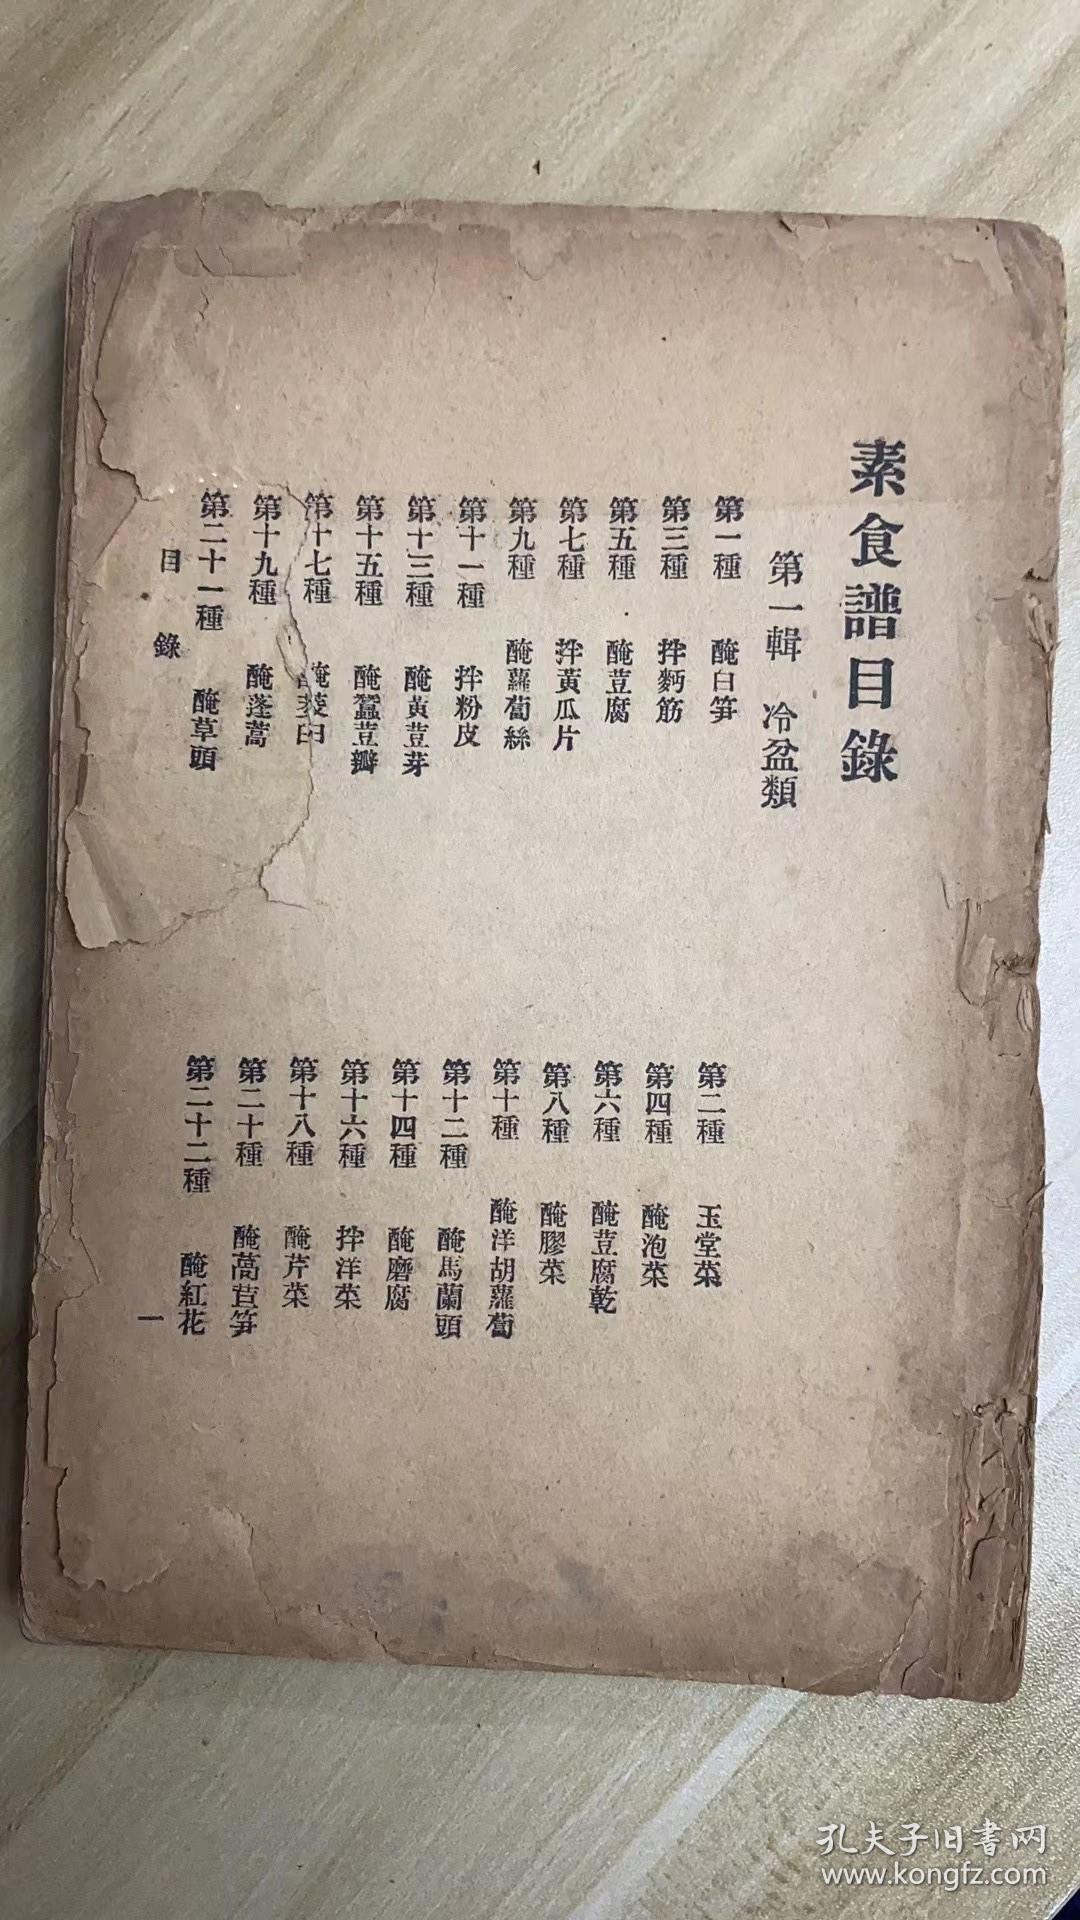 素食譜目錄
第一輯 冷盆類
第一種 醃白筍
第二種 玉堂菜
第三種 拌麪筋
第四種 醃泡菜
第五種 醃荳腐
第六種 醃荳腐乾
第七種 拌黃瓜片
第八種 醃膠菜
第九種 醃蘿蔔絲
第十種 醃洋胡蘿蔔
第十一種 拌粉皮
第十二種 醃馬蘭頭
第十三種 醃黃荳芽
第十四種 醃磨腐
第十五種 醃蠶荳瓣
第十六種 拌洋菜
第十七種 醃茭白
第十八種 醃芹菜
第十九種 醃蓬蒿
第二十種 醃萵苣筍
第二十一種 醃草頭
第二十二種 醃紅花
目錄
一
孔夫子旧書网
www.kongfz.com